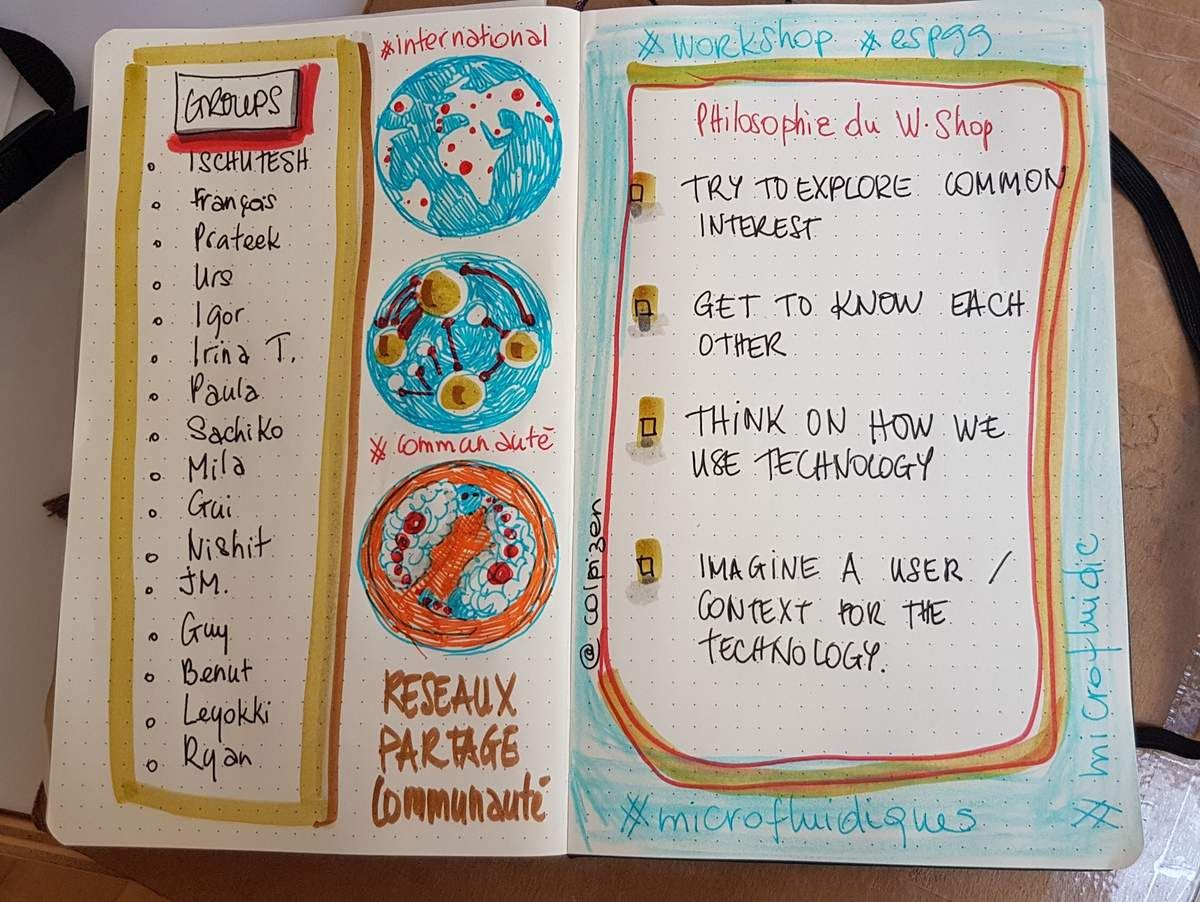 GROUPS
TSCHUTESH
François
Prateek
Urs
Igor
Irina T.
Paula
Sachiko
Mila
Gui
Nishit
JM.
Guy
Benut
Leyokki
Ryan
#international
#communauté
RESEAUX
PARTAGE
Communauté
#workshop #espgg
Philosophie du W.Shop
TRY TO EXPLORE COMMON
INTEREST
GET TO KNOW EACH
OTHER
THINK ON HOW WE
USE TECHNOLOGY
IMAGINE A USER /
CONTEXT FOR THE
TECHNOLOGY.
@colpizen
#microfluidic
#microfluidiques